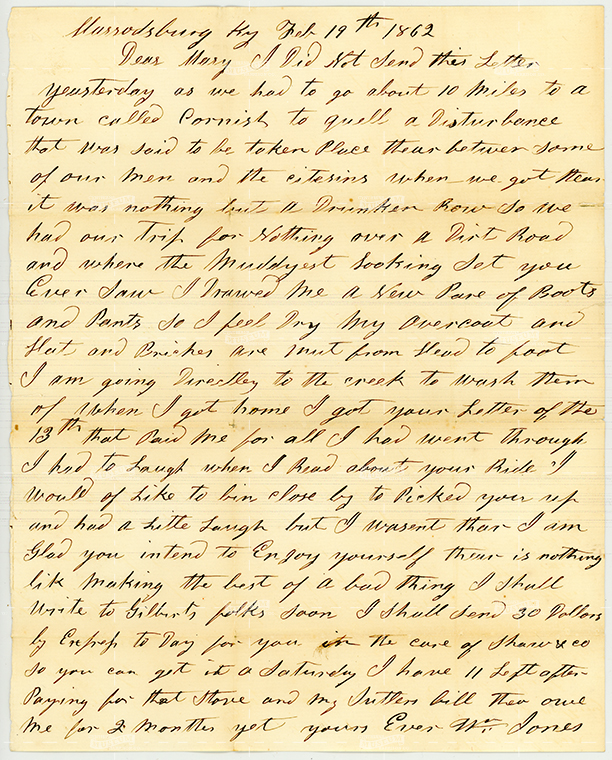 Harrodsburg Ky Feb 19th 1862
Dear Mary I Did Not Send this Letter
yeasterday as we had to go about 10 Miles to a
town called Cornish to quell a Disturbance
that was said to be taken Place thear betwer some
of our men and the citesins when we got thear
it was nothing but a Drunken Row so we
had our Trip for Nothing over a Dirt Road
and where the Muddyest Looking Set you
Ever Saw I Drawed Me a New Pare of Boots
and Pants so I feel Dry My overcoat and
Hat and Briches are mut from Head to foot
I am going Directley to the creek to wash them
of when I got home I got your Letter of the
13th that Paid Me for all I had went through
I had to Laugh when I Read about your Ride I
would of Like to bin close by to Picked you up
and had a Litte Laugh but I wasent thar I am
Glad you intend to Enjoy yourself thear is nothing
lik Making the best of a bad thing I shall
Write to Gilberts folks soon I shall send 30 Dollars
by Express to Day for you in the care of Shaw & co
so you can get it a Saturday I have 11 Left after
Paying for that Stove and my Sutlers bill thea owe
Me for 2 Months yet yours Ever Wm Jones